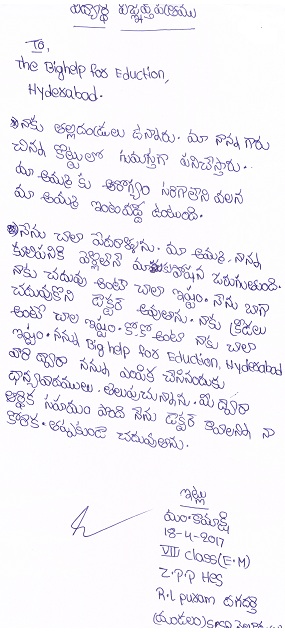 విద్యార్థి విజ్ఞప్తి పత్రము
To,
the Bighelp for Eduction,
Hyderabad.
నాకు తల్లిదండ్రులు ఉన్నారు. మా నాన్న గారు
చిన్న కొట్టులో గుమస్తాగా పనిచేస్తారు.
మా అమ్మ కు ఆరోగ్యం సరిగాలేని వలన
మా అమ్మ ఇంటివద్దే ఉంటుంది.
నేను చాలా పేదరాల్ని. మా అమ్మ, నాన్న
కూలిపనికి వెళ్లితేనే జరుగుతుంది.
నాకు చదువు అంటే చాలా ఇష్టం. నేను బాగా
చదువుకొని డాక్టర్ అవుతాను. నాకు క్రీడలు
అంటే చాల ఇష్టం. కో.కో అంటే నాకు చాలా
ఇష్టం. నన్ను Big help for Eduction, Hyderabad
వారి ద్వారా నన్ను ఎంపిక చేసినందుకు
ధాన్యవాదములు తెలుపుచున్నాను. మీ ద్వారా
ఆర్థిక సహాయం పొంది నేను డాక్టర్ కావాలన్నా నా
కోరిక. తప్పకుండా చదువుతాను.
ఇట్లు
కామాక్షి
18-4-2017
VIII class (E.M)
Z.P.P HGS
R.L puram దగదర్తి
(మండలం)